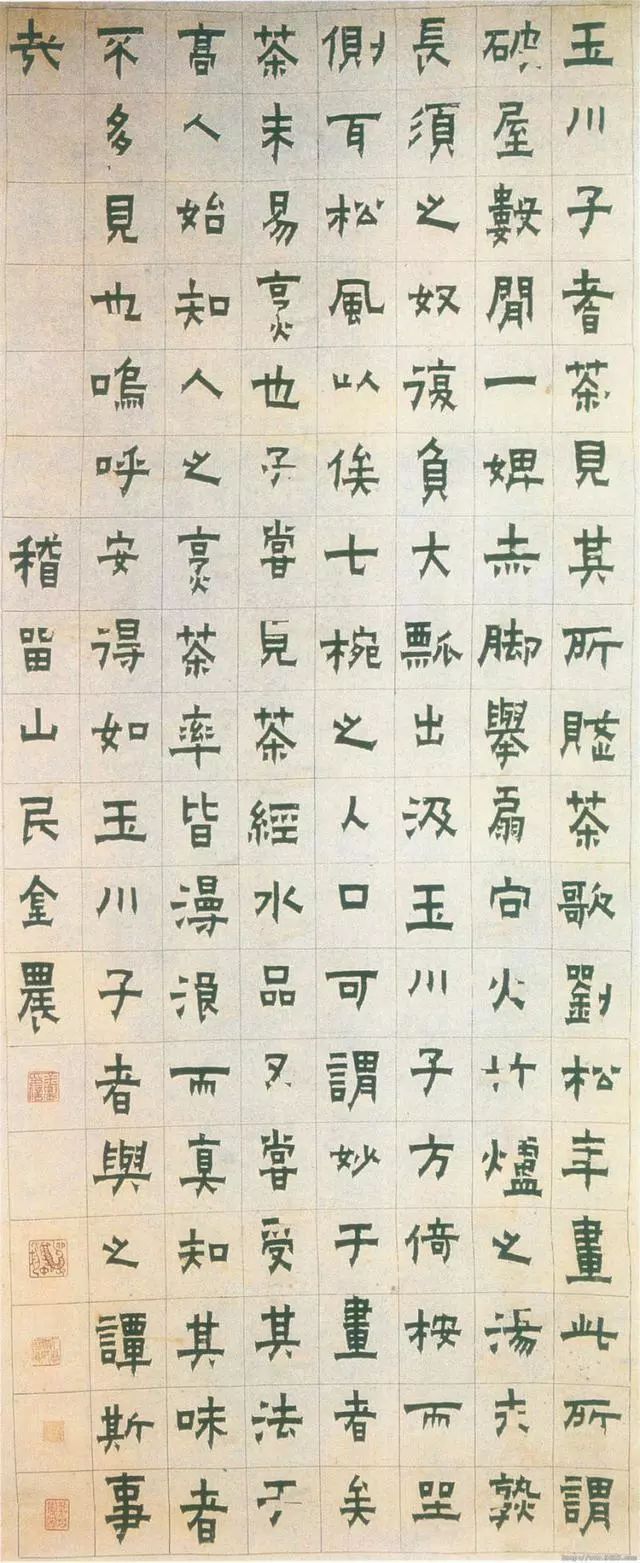 玉川子耆茶見其所賦茶歌劉松年畫此所謂
破屋數間一婢赤脚舉扇向火竹爐之湯未熟
長須之奴復負大瓢出汲玉川子方倚桉而坐
側耳松風以俟七椀之人口可謂妙于畫者矣
茶未易烹也予嘗見茶經水品又嘗受其法于
高人始知人之烹茶率皆漫浪而真知其味者
不多見也嗚呼安得如玉川子者與之譚斯事
哉
稽留山民金農